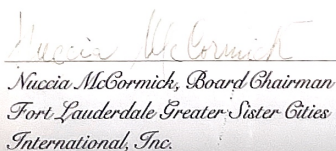 Nuccia McCormick
Nuccia McCormick, Board Chairman
Fort Lauderdale Greater Sister Cities
International, Inc.